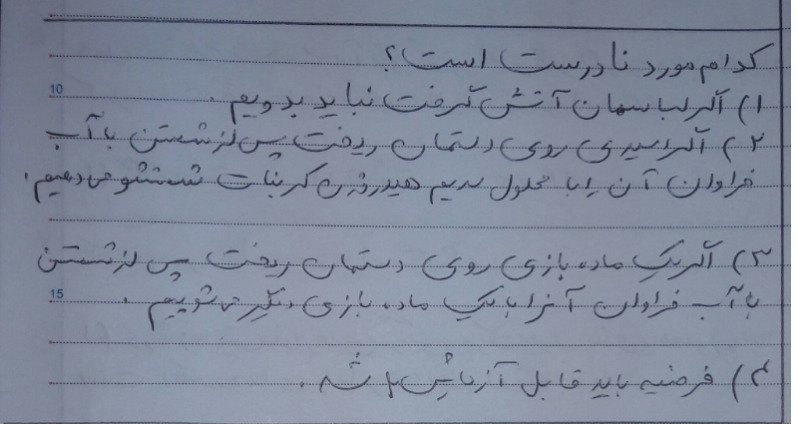 کدام مورد نادرست است؟
10
۱) اگر لباسمان آتش گرفت نباید بدویم.
۲) اگر اسیدی روی دستمان ریخت پس از شستن با آب
فراوان آن را با محلول سدیم هیدروژن کربنات شستشو می‌دهیم.
۳) اگر یک ماده بازی روی دستمان ریخت پس از شستن
15
با آب فراوان آنرا با یک ماده بازی دیگر می‌شوییم.
۴) فرضیه باید قابل آزمایش باشد.